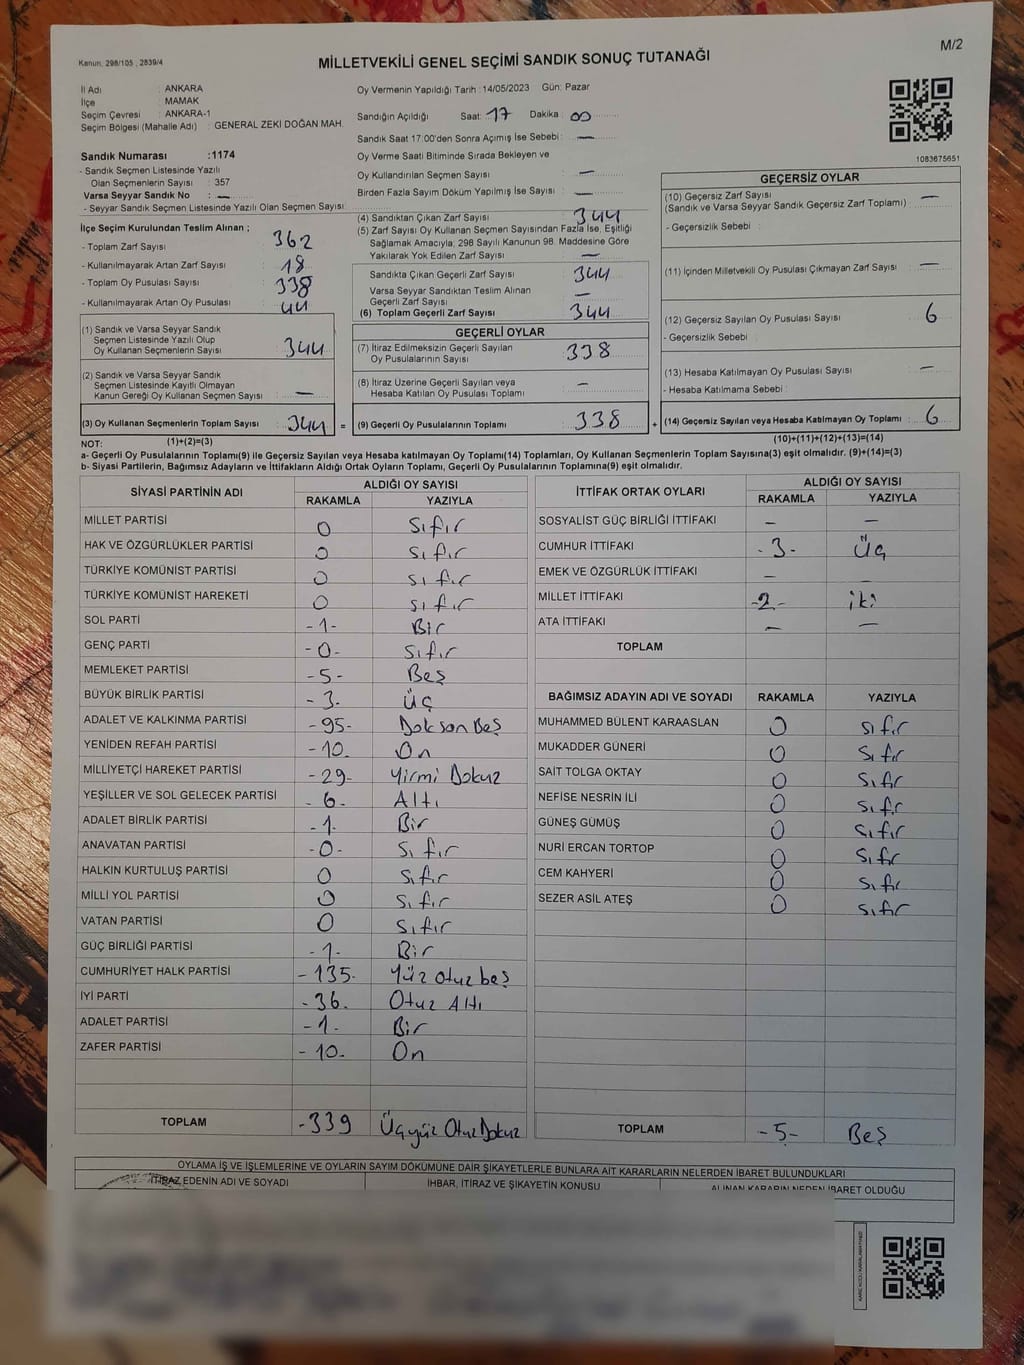 M/2
Kanun, 298/105 , 2839/4
MİLLETVEKİLİ GENEL SEÇİMİ SANDIK SONUÇ TUTANAĞI
İl Adı : ANKARA
İlçe : MAMAK
Seçim Çevresi : ANKARA-1
Seçim Bölgesi (Mahalle Adı) : GENERAL ZEKİ DOĞAN MAH.
Oy Vermenin Yapıldığı Tarih :14/05/2023 Gün: Pazar
Sandığın Açıldığı Saat: 17 Dakika : 00
Sandık Saat 17:00'den Sonra Açımış İse Sebebi : —
Sandık Numarası :1174
- Sandık Seçmen Listesinde Yazılı
Olan Seçmenlerin Sayısı : 357
Varsa Seyyar Sandık No : —
- Seyyar Sandık Seçmen Listesinde Yazılı Olan Seçmen Sayısı:
Oy Verme Saati Bitiminde Sırada Bekleyen ve
Oy Kullandırılan Seçmen Sayısı : —
Birden Fazla Sayım Döküm Yapılmış İse Sayısı : —
1083675651
İlçe Seçim Kurulundan Teslim Alınan ;
- Toplam Zarf Sayısı : 362
- Kullanılmayarak Artan Zarf Sayısı : 18
- Toplam Oy Pusulası : 338
- Kullanılmayarak Artan Oy Pusulası : 44
(1) Sandık ve Varsa Seyyar Sandık
Seçmen Listesinde Yazılı Olup
Oy Kullanan Seçmenlerin Sayısı : 344
(2) Sandık ve Varsa Seyyar Sandık
Seçmen Listesinde Kayıtlı Olmayan
Kanun Gereği Oy Kullanan Seçmen Sayısı : —
(3) Oy Kullanan Seçmenlerin Toplam Sayısı : 344 =
(1)+(2)=(3)
(4) Sandıktan Çıkan Zarf Sayısı : 344
(5) Zarf Sayısı Oy Kullanan Seçmen Sayısından Fazla İse, Eşitliği
Sağlamak Amacıyla, 298 Sayılı Kanunun 98. Maddesine Göre
Yakılarak Yok Edilen Zarf Sayısı : —
Sandıkta Çıkan Geçerli Zarf Sayısı : 344
Varsa Seyyar Sandıktan Teslim Alınan
Geçerli Zarf Sayısı : —
(6) Toplam Geçerli Zarf Sayısı : 344
GEÇERLİ OYLAR
(7) İtiraz Edilmeksizin Geçerli Sayılan
Oy Pusulalarının Sayısı : 338
(8) İtiraz Üzerine Geçerli Sayılan veya
Hesaba Katılan Oy Pusulası Toplamı : —
(9) Geçerli Oy Pusulalarının Toplamı : 338 +
GEÇERSİZ OYLAR
(10) Geçersiz Zarf Sayısı : —
(Sandık ve Varsa Seyyar Sandık Geçersiz Zarf Toplamı)
- Geçersizlik Sebebi :
(11) İçinden Milletvekili Oy Pusulası Çıkmayan Zarf Sayısı : —
(12) Geçersiz Sayılan Oy Pusulası Sayısı : 6
- Geçersizlik Sebebi :
(13) Hesaba Katılmayan Oy Pusulası Sayısı : —
- Hesaba Katılmama Sebebi :
(14) Geçersiz Sayılan veya Hesaba Katılmayan Oy Toplamı : 6
(10)+(11)+(12)+(13)=(14)
NOT:
a- Geçerli Oy Pusulalarının Toplamı(9) ile Geçersiz Sayılan veya Hesaba katılmayan Oy Toplamı(14) Toplamları, Oy Kullanan Seçmenlerin Toplam Sayısına(3) eşit olmalıdır. (9)+(14)=(3)
b- Siyasi Partilerin, Bağımsız Adayların ve İttifakların Aldığı Ortak Oyların Toplamı, Geçerli Oy Pusulalarının Toplamına(9) eşit olmalıdır.
SİYASİ PARTİNİN ADI ALDIĞI OY SAYISI
RAKAMLA YAZIYLA
MİLLET PARTİSİ 0 Sıfır
HAK VE ÖZGÜRLÜKLER PARTİSİ 0 sıfır
TÜRKİYE KOMÜNİST PARTİSİ 0 sıfır
TÜRKİYE KOMÜNİST HAREKETİ 0 sıfır
SOL PARTİ -1- Bir
GENÇ PARTİ -0- sıfır
MEMLEKET PARTİSİ -5- Beş
BÜYÜK BİRLİK PARTİSİ -3- Üç
ADALET VE KALKINMA PARTİSİ -95- Doksan Beş
YENİDEN REFAH PARTİSİ -10- On
MİLLİYETÇİ HAREKET PARTİSİ -29- Yirmi Dokuz
YEŞİLLER VE SOL GELECEK PARTİSİ -6- Altı
ADALET BİRLİK PARTİSİ -1- Bir
ANAVATAN PARTİSİ -0- Sıfır
HALKIN KURTULUŞ PARTİSİ 0 Sıfır
MİLLİ YOL PARTİSİ 0 Sıfır
VATAN PARTİSİ 0 Sıfır
GÜÇ BİRLİĞİ PARTİSİ -1- Bir
CUMHURİYET HALK PARTİSİ -135- Yüz otuz beş
İYİ PARTİ -36- Otuz Altı
ADALET PARTİSİ -1- Bir
ZAFER PARTİSİ -10- On
TOPLAM -339 Üçyüz Otuz Dokuz
İTTİFAK ORTAK OYLARI ALDIĞI OY SAYISI
RAKAMLA YAZIYLA
SOSYALİST GÜÇ BİRLİĞİ İTTİFAKI — —
CUMHUR İTTİFAKI -3- Üç
EMEK VE ÖZGÜRLÜK İTTİFAKI — —
MİLLET İTTİFAKI -2- iki
ATA İTTİFAKI — —
TOPLAM
BAĞIMSIZ ADAYIN ADI VE SOYADI RAKAMLA YAZIYLA
MUHAMMED BÜLENT KARAASLAN 0 sıfır
MUKADDER GÜNERİ 0 Sıfır
SAİT TOLGA OKTAY 0 Sıfır
NEFİSE NESRİN İLİ 0 Sıfır
GÜNEŞ GÜMÜŞ 0 Sıfır
NURİ ERCAN TORTOP 0 Sıfır
CEM KAHYERİ 0 Sıfır
SEZER ASİL ATEŞ 0 sıfır
TOPLAM -5- Beş
OYLAMA İŞ VE İŞLEMLERİNE VE OYLARIN SAYIM DÖKÜMÜNE DAİR ŞİKAYETLERLE BUNLARA AİT KARARLARIN NELERDEN İBARET BULUNDUKLARI
İTİRAZ EDENİN ADI VE SOYADI İHBAR, İTİRAZ VE ŞİKAYETİN KONUSU ALINAN KARARIN NEDEN İBARET OLDUĞU